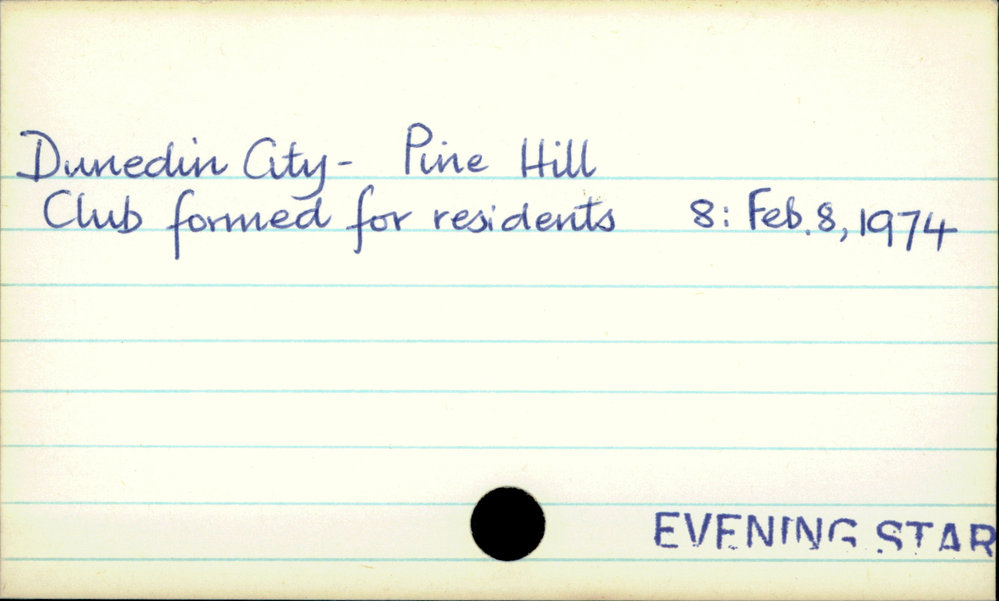 Dunedin City- Pine Hill
Club formed for residents 8: Feb. 8, 1974
EVENING STAR